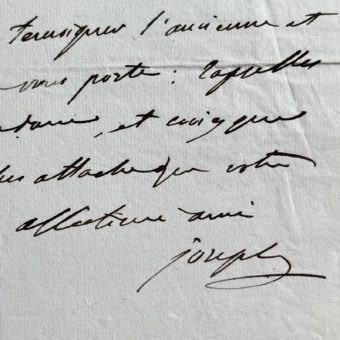 temoigner l'ancienne et
vous porte : rappelles
dame, et croieque
lus attache que votre
affectionné ami
joseph